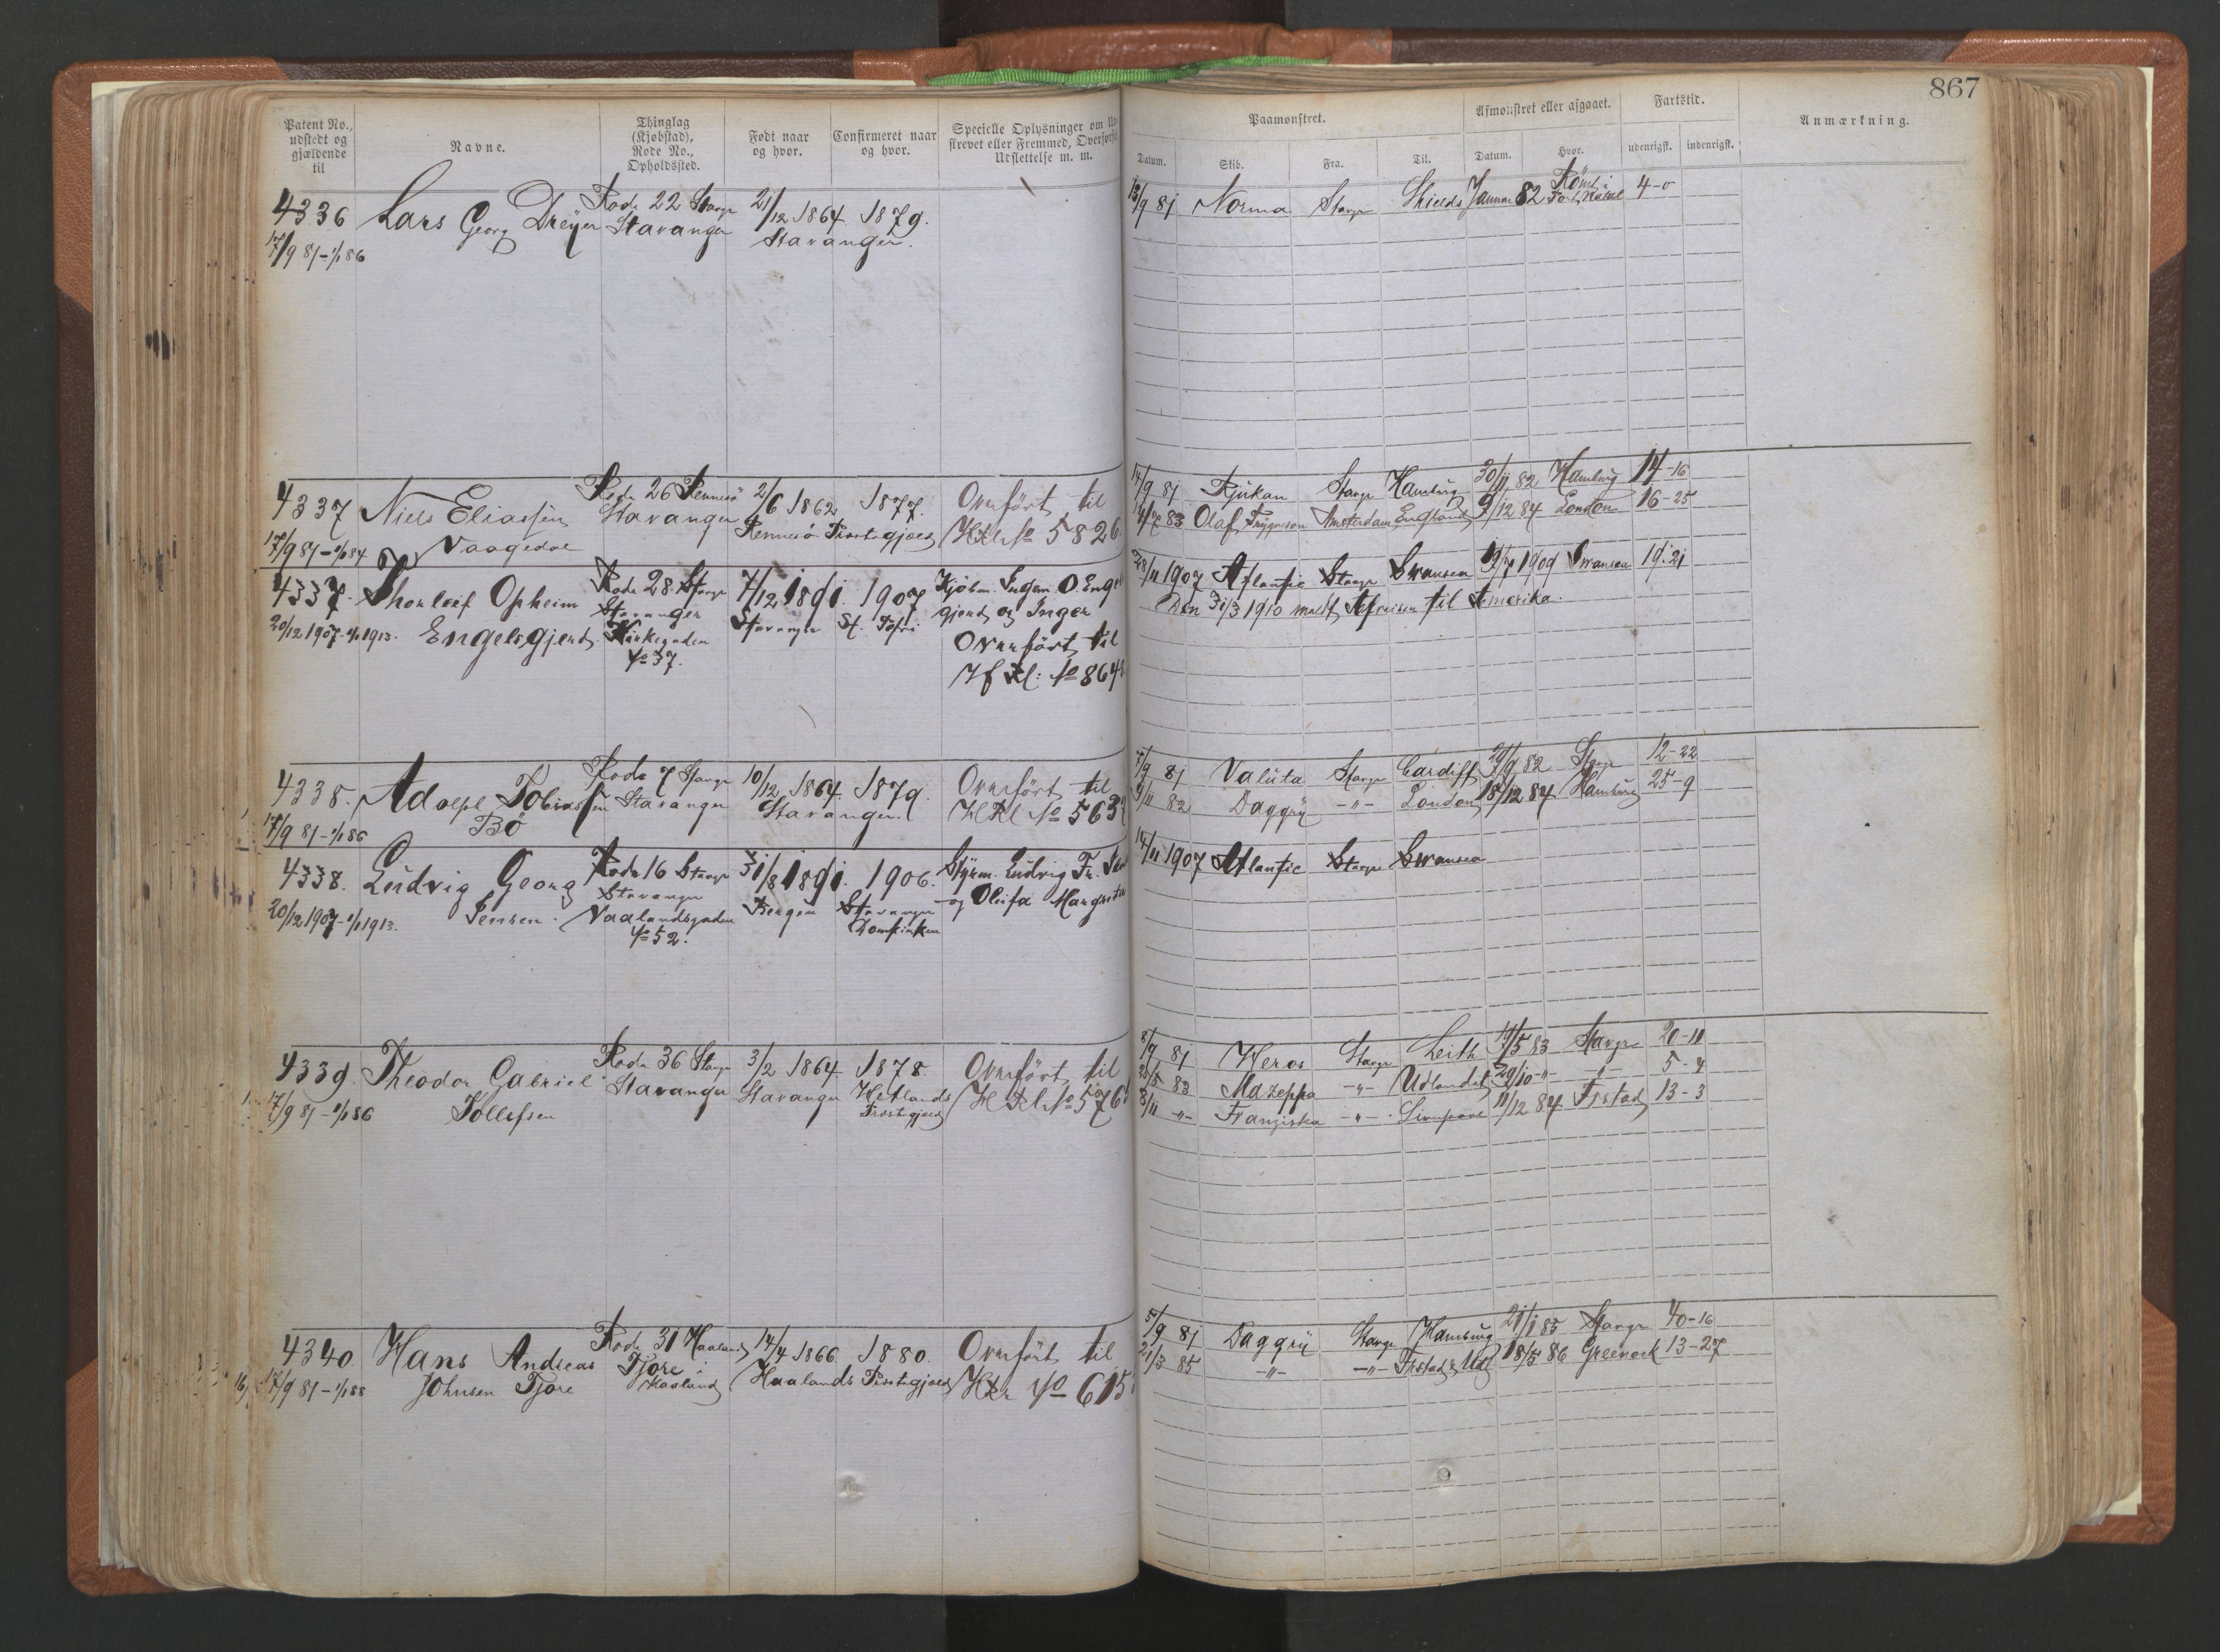 867
Patent No., udstedt og gjældende til
Navne.
Thinglag (Kjøbstad), Rode No., Opholdssted.
Født naar og hvor.
Confirmeret naar og hvor.
Specielle Oplysninger om
strevet eller Fremmed, Overførsel
Udslettelse m. m.
Paamønstret.
Afmønstret eller afgaaet.
Fartstid.
Anmærkning.
Datum. Skib. Fra. Til. Datum. Hvor. udenrigsk. indenrigsk.
4336 Lars Georg Dreyer Rode 22 Stavgr 21/12 1864 1879.
17/9 81-1/1 86 Stavanger Stavanger.
13/9 81 Norma Stavgr Shields Januar 82 4-0
4337 Niels Eliassen Rode 26 Rennesö 2/6 1862 1877. Overført til
17/9 81-1/1 84 Vaagedal Stavanger Rennesö Præstegjæld HKl No 5826
14/9 81 Rjukan Stavgr Hamburg 30/11 82 Hamburg 14-16
83 Olaf Trygveson Amsterdam England 9/12 84 London 16-25
4337. Thorleif Opheim Rode 28 Stavgr 7/12 1891. 1907 Kjöbm. Ingem. O. Engels
20/12 1907-1/1 1913. Engelsgjerd Stavanger Stavanger St. Petri gjerd og Inger
Kirkegaden No 37. Overført til
Hf Kl: No 864
28/11 1907 Atlantic Stavgr Swansea 1909 Swansea 19-21
Den 31/3 1910 meldt Afreisen til Amerika.
4338. Adolph Tobiassen Rode 7 Stavgr 10/12 1864. 1879. Overført til
17/9 81-1/1 86 Bö Stavanger Stavanger. HKl No 563
7/9 81 Valuta Stavgr Cardiff 19/9 82 Stavgr 12-22
9/11 82 Daggry -"- London 18/12 84 Hamburg 25-9
4338. Ludvig Georg Rode 16 Stavgr 31/8 1891. 1906. Styrm. Ludvig Fr.
20/12 1907-1/1 1913. Jensen. Stavanger Bergen Stavanger og Olufa Margrete
Vaalandsgaden Domkirken
No 52.
14/11 1907 Atlantic Stavgr Swansea
4339. Theodor Gabriel Rode 36 Stavgr 3/2 1864 1878 Overført til
17/9 81-1/1 86 Tollefsen Stavanger Stavanger Hetlands Præstegjæld HKl No 576
8/9 81 Heros Stavgr Leith 19/5 83 Stavgr 20-11
25/5 83 Mazeppa -"- Udlandet 29/10 -"- -"- 5-4
8/11 -"- Franziska -"- Liverpool 11/12 84 Frstad 13-3
4340. Hans Andreas Rode 31 Haaland 14/4 1866. 1880. Overført til
17/9 81-1/1 88 Johnsen Tjore Tjore i Haaland Haalands Præstegjæld HKr No 615
5/9 81 Daggry Stavgr Hamburg 21/1 85 Stavgr 40-16
21/3 85 -"- -"- Frstad & Udl 18/5 86 Greenock 13-27